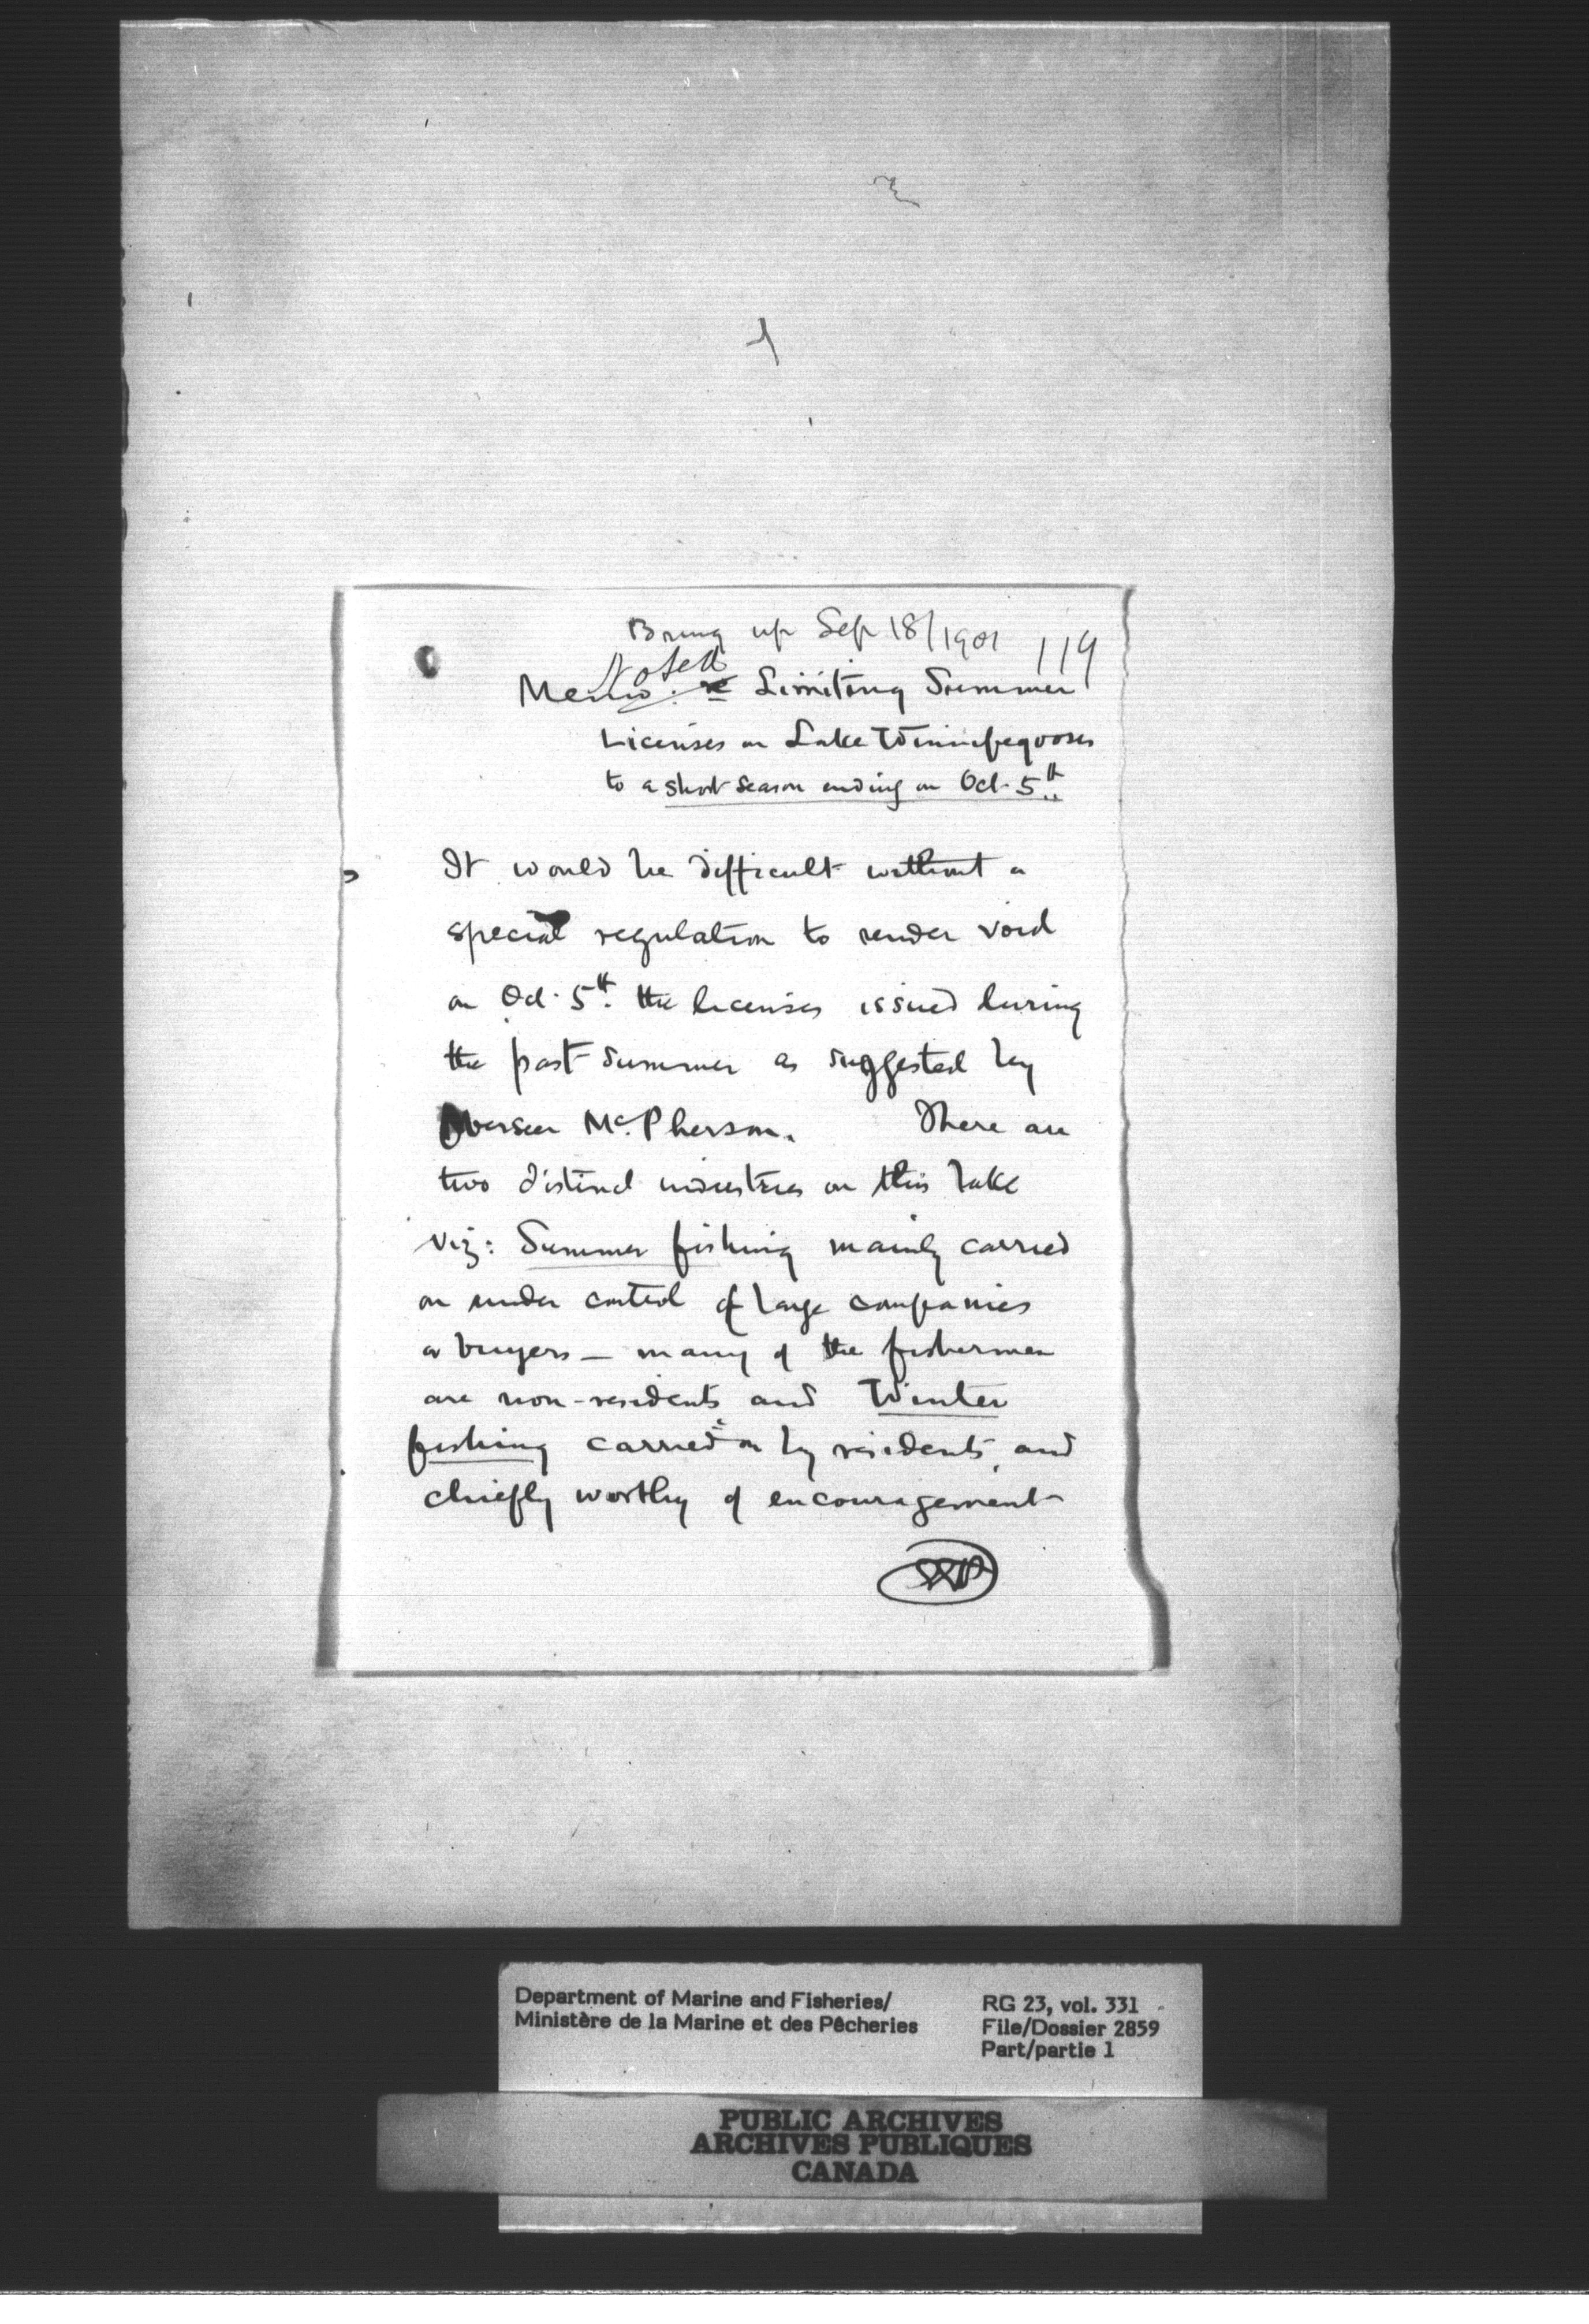 Bring up Sep 18/1901
119
Noted
Memo: re Limiting Summer
Licenses on Lake Winnipegooses
to a short season ending on Oct. 5th
It would be difficult without a
special regulation to render void
on Oct. 5th the licenses issued during
the past summer as suggested by
Overseer McPherson. There are
two distinct industries on this lake
viz: Summer fishing mainly carried
on under control of large companies
or buyers — many of the fishermen
are non-residents and Winter
fishing carried on by residents, and
chiefly worthy of encouragement
Department of Marine and Fisheries/
Ministère de la Marine et des Pêcheries
RG 23, vol. 331
File/Dossier 2859
Part/partie 1
PUBLIC ARCHIVES
ARCHIVES PUBLIQUES
CANADA